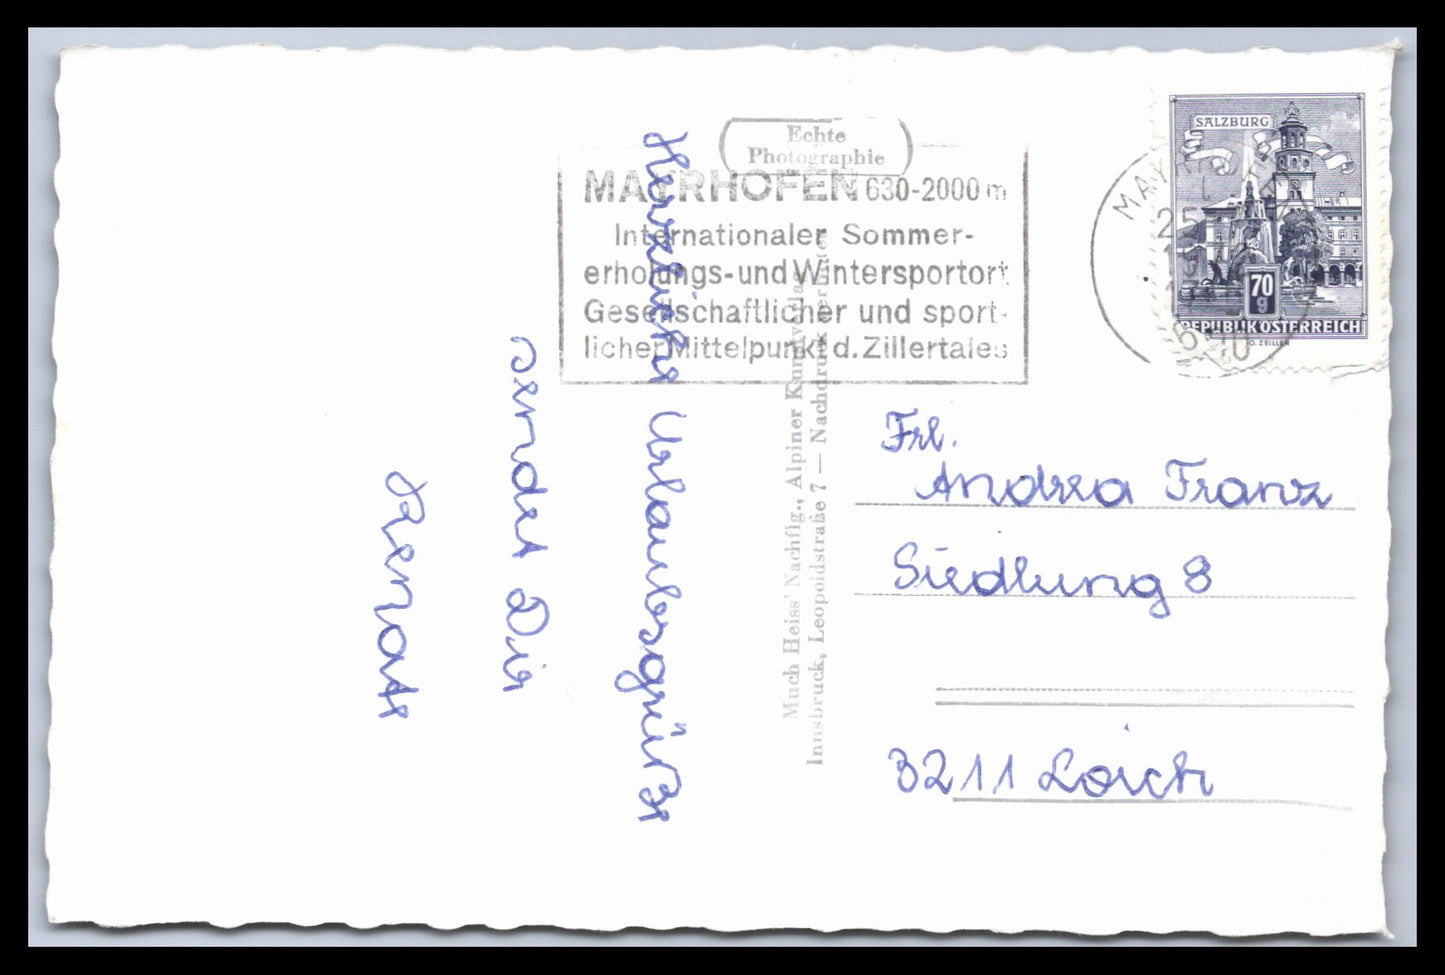 Echte
Photographie
MAYRHOFEN 630-2000 m
Internationaler Sommer-
erholungs-und Wintersportort
Gesellschaftlicher und sport-
licher Mittelpunkt d. Zillertales
SALZBURG
70
g
REPUBLIK ÖSTERREICH
O. ZEILLER
Herzliche Urlaubsgrüße
sendet Dir
Renate
Much Heiss' Nachflg., Alpiner Kunstverlag
Innsbruck, Leopoldstraße 7 — Nachdruck verboten
Frl.
Andrea Franz
Siedlung 8
3211 Loich